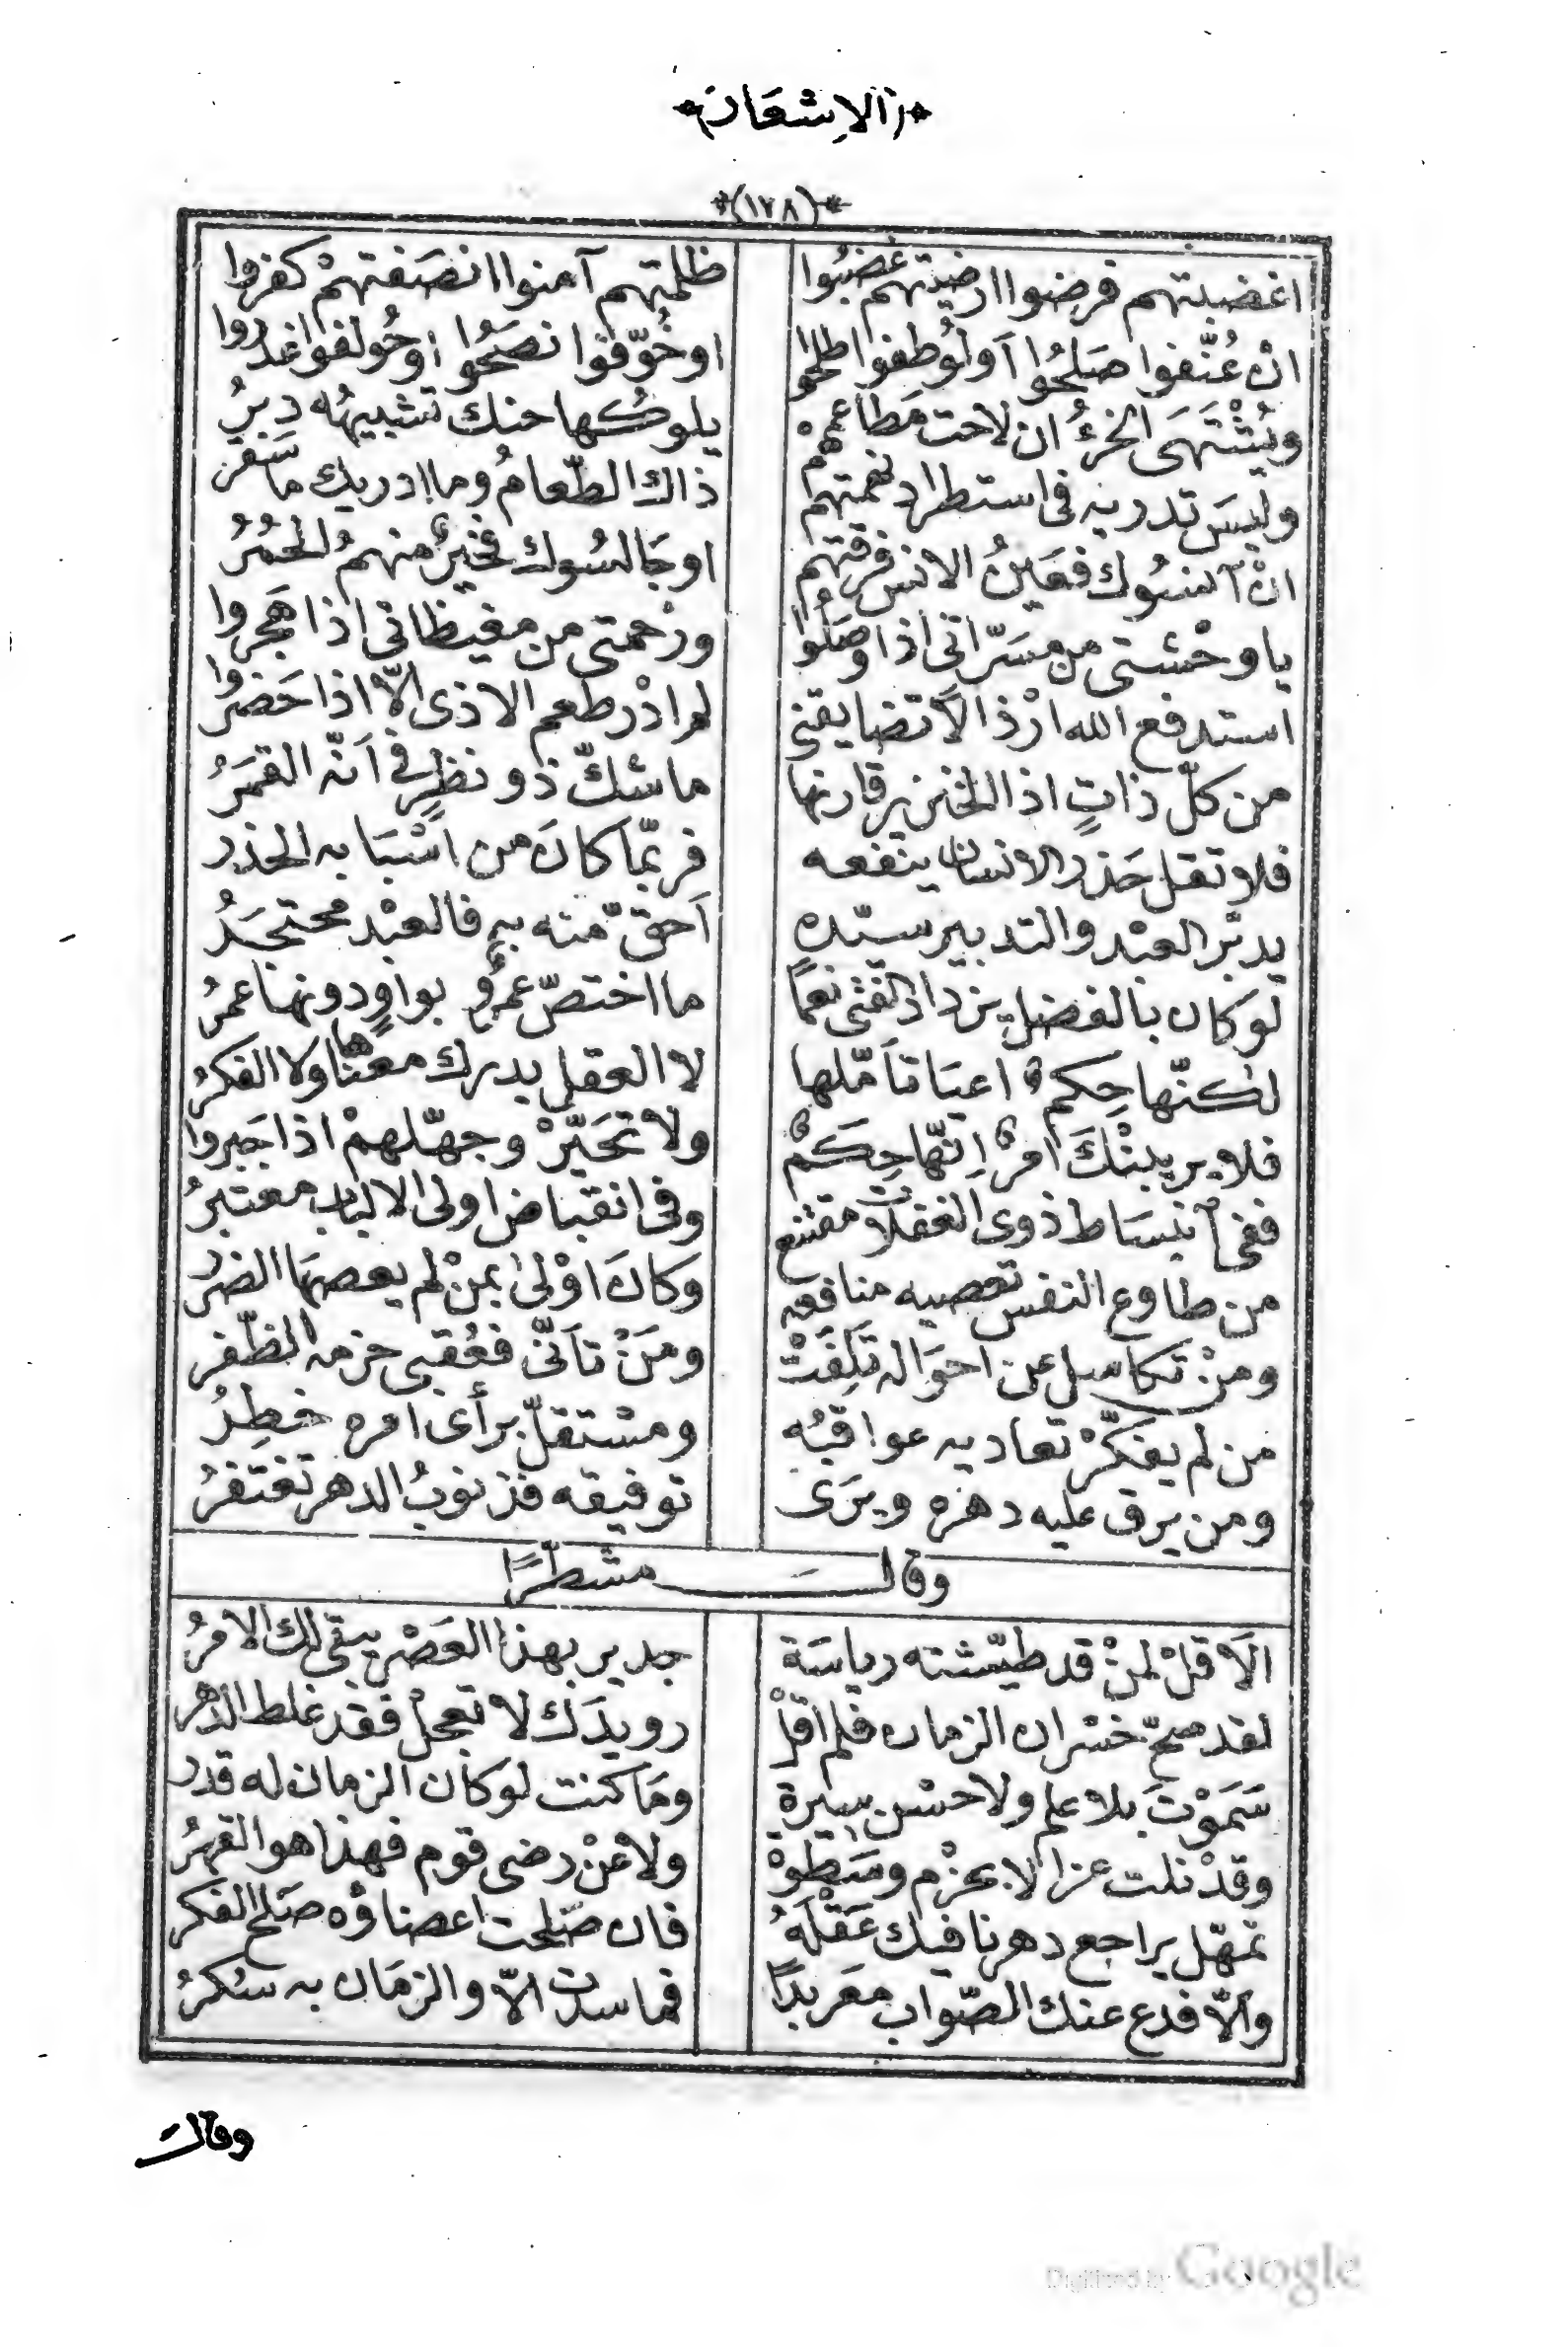 ﴿الاشعار﴾
(١٧٨)
اغضبتهم فرضوا ارضيتهم غضبوا ظلمتهم آمنوا انصفتهم كفروا
ان عُنّفوا صلحُوا اَو لُوطفوا طلحوا او خُوّفوا نصَحُوا او حُولفوا غدروا
ويُشْتَهَى الخرءُ ان لاحت مَطاعمهمْ يلوكُها حنك تشبيهُه دبرُ
وليسَ تدريه فى استطراد نعمتهم ذاك الطّعامُ وما ادريك ما سَقر
انْ آنسُوك فعَينُ الانس فرقتهم او جَالسُوك فخيرٌ منهمُ الحُمُرُ
يا وحْشتى من مسَرّاتى اذا وصَلُوا ورحْمتى من مغيظاتى اذا هَجروا
استدفع الله ارْذالاً تضايقنى لم ادْر طعم الاذى الّا اذا حَضرُوا
من كلّ ذاتٍ اذا الخنزير قارنها ما شكّ ذو نظرٍ فى اَنّه القمَرُ
فلا تقل حَذر الانسان ينفعه فربّما كانَ من اسْبَابه الحذر
يدبّر العبْد والتدبير سيّده اَحقّ منه به فالعبْد محتجَرُ
لو كان بالفضلِ يزداد الفتى نعمًا ما اختصّ عمرٌو بواوٍ دونها عمرُ
لكنّها حِكمٌ اعيَا تاَمّلها لا العقل يدرك معنَاها ولا الفكرُ
فلا يريبنْكَ امرٌ اِنّها حِكَمٌ ولا تحَيّرْ وجهّلهمْ اذا جبروا
ففى انبسَاط ذوى الغفلات مقتنع وفى انقباض اولى الالباب معتبرُ
من طاوع النفس تعصيه منافعه وكانَ اوْلى بمنْ لم يعصهَا الضرر
ومنْ تكاسل عن احوَاله تَلِفَتْ ومَنْ تأنّى فعُقبى حزمه الظّفر
من لم يفكّرْ تعاديه عواقبُه ومسْتقلّ برأى امره خطِرُ
ومن يرق عليه دهره ويرَى توفيقه فذنوبُ الدهر تغتفرُ
وقال مشطّرًا
الَا قلْ لمنْ قد طيّشته رياسَة جدير بهذا العَصْر يبقى لك الامرُ
لقد صحّ خسْران الزمان فلم اقلْ رويدَك لا تعجلْ فقد غلط الدّهر
سَمَوْتَ بلا علم ولا حسْن سيرة ومَا كنت لو كان الزمان له قدر
وقدْ نلت عزا لا بحزْم وسَطوة ولا عنْ رضى قوم فهذا هو القهرُ
تمهّل يراجع دهرنا فيك عَقْلَهُ فان صَلحت اعضاؤه صَلح الفكر
واَلّا فدع عنك الصّواب معَربدًا فما سدت الّا والزمَان به سُكرُ
وقال
Digitized by Google